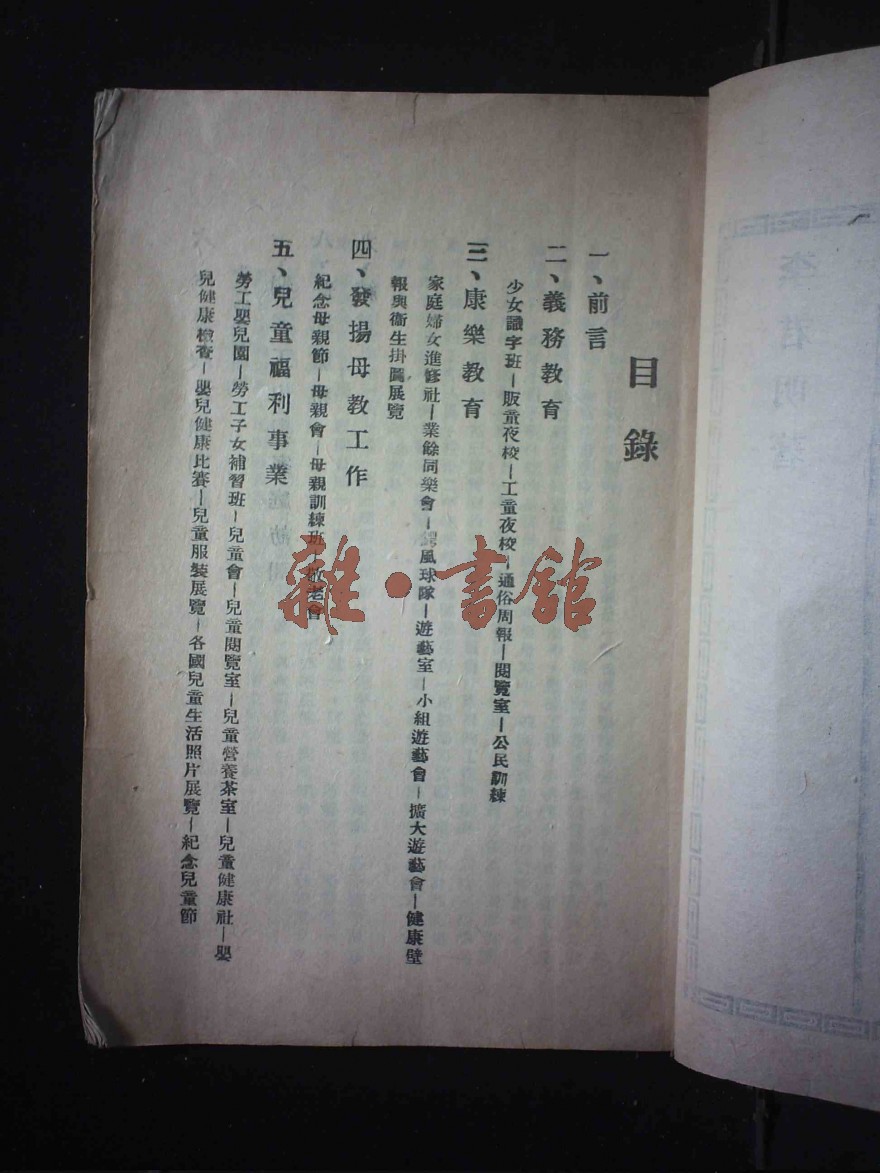 目錄
一、前言
二、義務教育
少女識字班—販童夜校—工童夜校—通俗周報—閱覽室—公民訓練
三、康樂教育
家庭婦女進修社—業餘同樂會—風球隊—遊藝室—小組遊藝會—擴大遊藝會—健康壁
報與衞生掛圖展覽
四、發揚母教工作
紀念母親節—母親會—母親訓練班—敬老會
五、兒童福利事業
勞工嬰兒園—勞工子女補習班—兒童會—兒童閱覽室—兒童營養茶室—兒童健康社—嬰
兒健康檢查—嬰兒健康比賽—兒童服裝展覽—各國兒童生活照片展覽—紀念兒童節
雜·書館